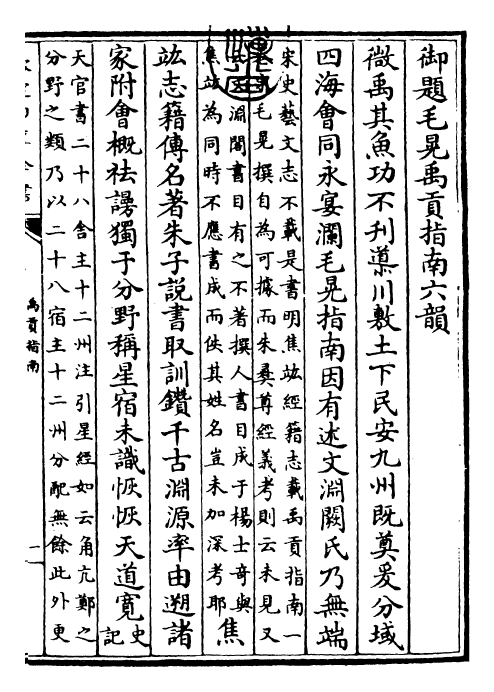 御題毛晃禹貢指南六韻
微禹其魚功不刊導川敷土下民安九州既奠爰分域
四海會同永宴瀾毛晃指南因有述文淵闕氏乃無端
宋史藝文志不載是書明焦竑經籍志載禹貢指南一
毛晃撰自為可據而朱彝尊經義考則云未見又
淵閣書目有之不著撰人書目成于楊士奇與
焦竑為同時不應書成而佚其姓名豈未加深考耶
焦
竑志籍傳名著朱子説書取訓鑽千古淵源率由遡諸
家附會概祛謾獨于分野稱星宿未識恢恢天道寛
史
記
天官書二十八舍主十二州注引星經如云角亢鄭之
分野之類乃以二十八宿主十二州分配無餘此外更
禹貢指南
一